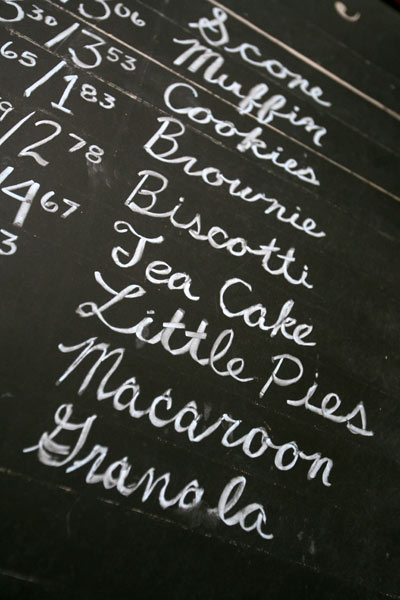 Scone
06 Muffin
30 / 3 53 Cookies
65 / 1 83 Brownie
/ 2 78 Biscotti
4 67 Tea Cake
3 Little Pies
Macaroon
Granola